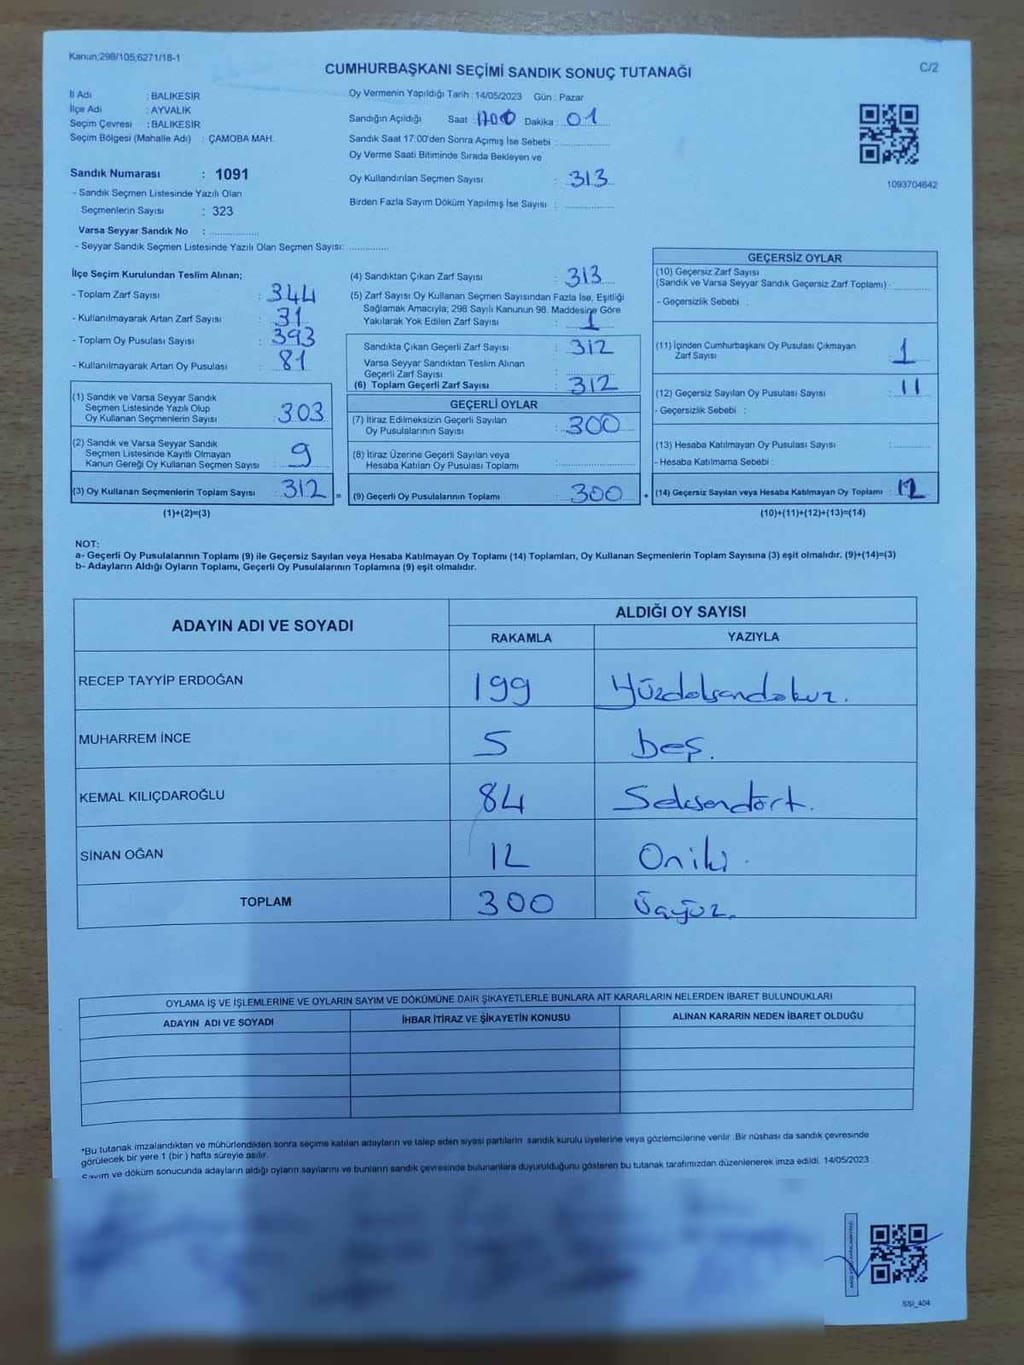 Kanun;298/105;6271/18-1
CUMHURBAŞKANI SEÇİMİ SANDIK SONUÇ TUTANAĞI
C/2
İl Adı : BALIKESİR
İlçe Adı : AYVALIK
Seçim Çevresi : BALIKESİR
Seçim Bölgesi (Mahalle Adı) : ÇAMOBA MAH.
Oy Vermenin Yapıldığı Tarih : 14/05/2023 Gün : Pazar
Sandığın Açıldığı Saat : 1700 Dakika : 01
Sandık Saat 17:00'den Sonra Açımış İse Sebebi :
Oy Verme Saati Bitiminde Sırada Bekleyen ve
Oy Kullandırılan Seçmen Sayısı : 313
Birden Fazla Sayım Döküm Yapılmış İse Sayısı :
1093704642
Sandık Numarası : 1091
- Sandık Seçmen Listesinde Yazılı Olan
Seçmenlerin Sayısı : 323
Varsa Seyyar Sandık No :
- Seyyar Sandık Seçmen Listesinde Yazılı Olan Seçmen Sayısı:
İlçe Seçim Kurulundan Teslim Alınan;
- Toplam Zarf Sayısı : 344
- Kullanılmayarak Artan Zarf Sayısı : 31
- Toplam Oy Pusulası Sayısı : 393
- Kullanılmayarak Artan Oy Pusulası : 81
(1) Sandık ve Varsa Seyyar Sandık
Seçmen Listesinde Yazılı Olup
Oy Kullanan Seçmenlerin Sayısı : 303
(2) Sandık ve Varsa Seyyar Sandık
Seçmen Listesinde Kayıtlı Olmayan
Kanun Gereği Oy Kullanan Seçmen Sayısı : 9
(3) Oy Kullanan Seçmenlerin Toplam Sayısı : 312 =
(1)+(2)=(3)
(4) Sandıktan Çıkan Zarf Sayısı : 313
(5) Zarf Sayısı Oy Kullanan Seçmen Sayısından Fazla İse, Eşitliği
Sağlamak Amacıyla; 298 Sayılı Kanunun 98. Maddesine Göre
Yakılarak Yok Edilen Zarf Sayısı : 1
Sandıkta Çıkan Geçerli Zarf Sayısı : 312
Varsa Seyyar Sandıktan Teslim Alınan
Geçerli Zarf Sayısı :
(6) Toplam Geçerli Zarf Sayısı : 312
GEÇERLİ OYLAR
(7) İtiraz Edilmeksizin Geçerli Sayılan
Oy Pusulalarının Sayısı : 300
(8) İtiraz Üzerine Geçerli Sayılan veya
Hesaba Katılan Oy Pusulası Toplamı :
(9) Geçerli Oy Pusulalarının Toplamı : 300 +
GEÇERSİZ OYLAR
(10) Geçersiz Zarf Sayısı
(Sandık ve Varsa Seyyar Sandık Geçersiz Zarf Toplamı) :
- Geçersizlik Sebebi :
(11) İçinden Cumhurbaşkanı Oy Pusulası Çıkmayan
Zarf Sayısı : 1
(12) Geçersiz Sayılan Oy Pusulası Sayısı : 11
- Geçersizlik Sebebi :
(13) Hesaba Katılmayan Oy Pusulası Sayısı :
- Hesaba Katılmama Sebebi :
(14) Geçersiz Sayılan veya Hesaba Katılmayan Oy Toplamı : 12
(10)+(11)+(12)+(13)=(14)
NOT:
a- Geçerli Oy Pusulalarının Toplamı (9) ile Geçersiz Sayılan veya Hesaba Katılmayan Oy Toplamı (14) Toplamları, Oy Kullanan Seçmenlerin Toplam Sayısına (3) eşit olmalıdır. (9)+(14)=(3)
b- Adayların Aldığı Oyların Toplamı, Geçerli Oy Pusulalarının Toplamına (9) eşit olmalıdır.
ADAYIN ADI VE SOYADI
ALDIĞI OY SAYISI
RAKAMLA YAZIYLA
RECEP TAYYİP ERDOĞAN 199 Yüzdoksandokuz.
MUHARREM İNCE 5 beş.
KEMAL KILIÇDAROĞLU 84 Seksendört.
SİNAN OĞAN 12 Oniki.
TOPLAM 300 Üçyüz.
OYLAMA İŞ VE İŞLEMLERİNE VE OYLARIN SAYIM VE DÖKÜMÜNE DAİR ŞİKAYETLERLE BUNLARA AİT KARARLARIN NELERDEN İBARET BULUNDUKLARI
ADAYIN ADI VE SOYADI İHBAR İTİRAZ VE ŞİKAYETİN KONUSU ALINAN KARARIN NEDEN İBARET OLDUĞU
*Bu tutanak imzalandıktan ve mühürlendikten sonra seçime katılan adayların ve talep eden siyasi partilerin sandık kurulu üyelerine veya gözlemcilerine verilir. Bir nüshası da sandık çevresinde
görülecek bir yere 1 (bir ) hafta süreyle asılır.
Sayım ve döküm sonucunda adayların aldığı oyların sayılarını ve bunların sandık çevresinde bulunanlara duyurulduğunu gösteren bu tutanak tarafımızdan düzenlenerek imza edildi. 14/05/2023
SSI_404